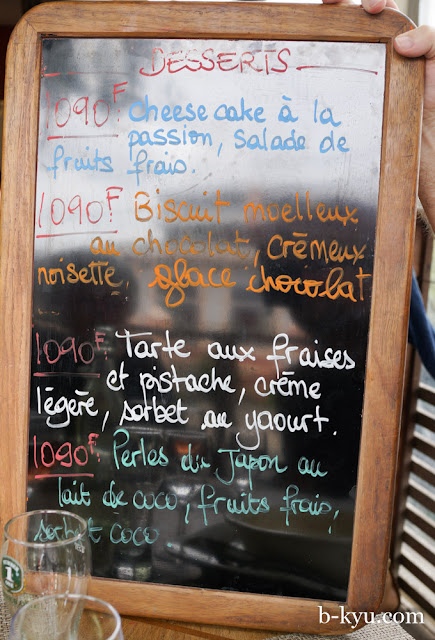 DESSERTS
1090F Cheese cake à la
passion, Salade de
fruits frais.
1090F Biscuit moelleux
au chocolat, crémeux
noisette, glace chocolat
1090F Tarte aux fraises
et pistache, crème
légère, sorbet au yaourt.
1090F Perles du Japon au
lait de coco, fruits frais,
sorbet coco.
b-kyu.com